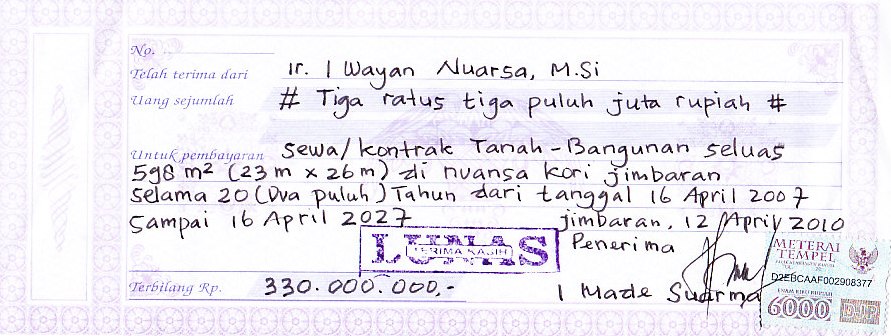 No.
Telah terima dari Ir. I Wayan Nuarsa, M.Si
Uang sejumlah # Tiga ratus tiga puluh juta rupiah #
Untuk pembayaran Sewa/kontrak Tanah-Bangunan seluas
598 m² (23 m x 26 m) di nuansa kori jimbaran
selama 20 (Dua puluh) Tahun dari tanggal 16 April 2007
Sampai 16 April 2027
jimbaran, 12 April 2010
LUNAS
TERIMA KASIH
Penerima
METERAI
TEMPEL
D2EBCAAF002908377
ENAM RIBU RUPIAH
6000 DJP
Terbilang Rp. 330.000.000,-
I Made Suarma